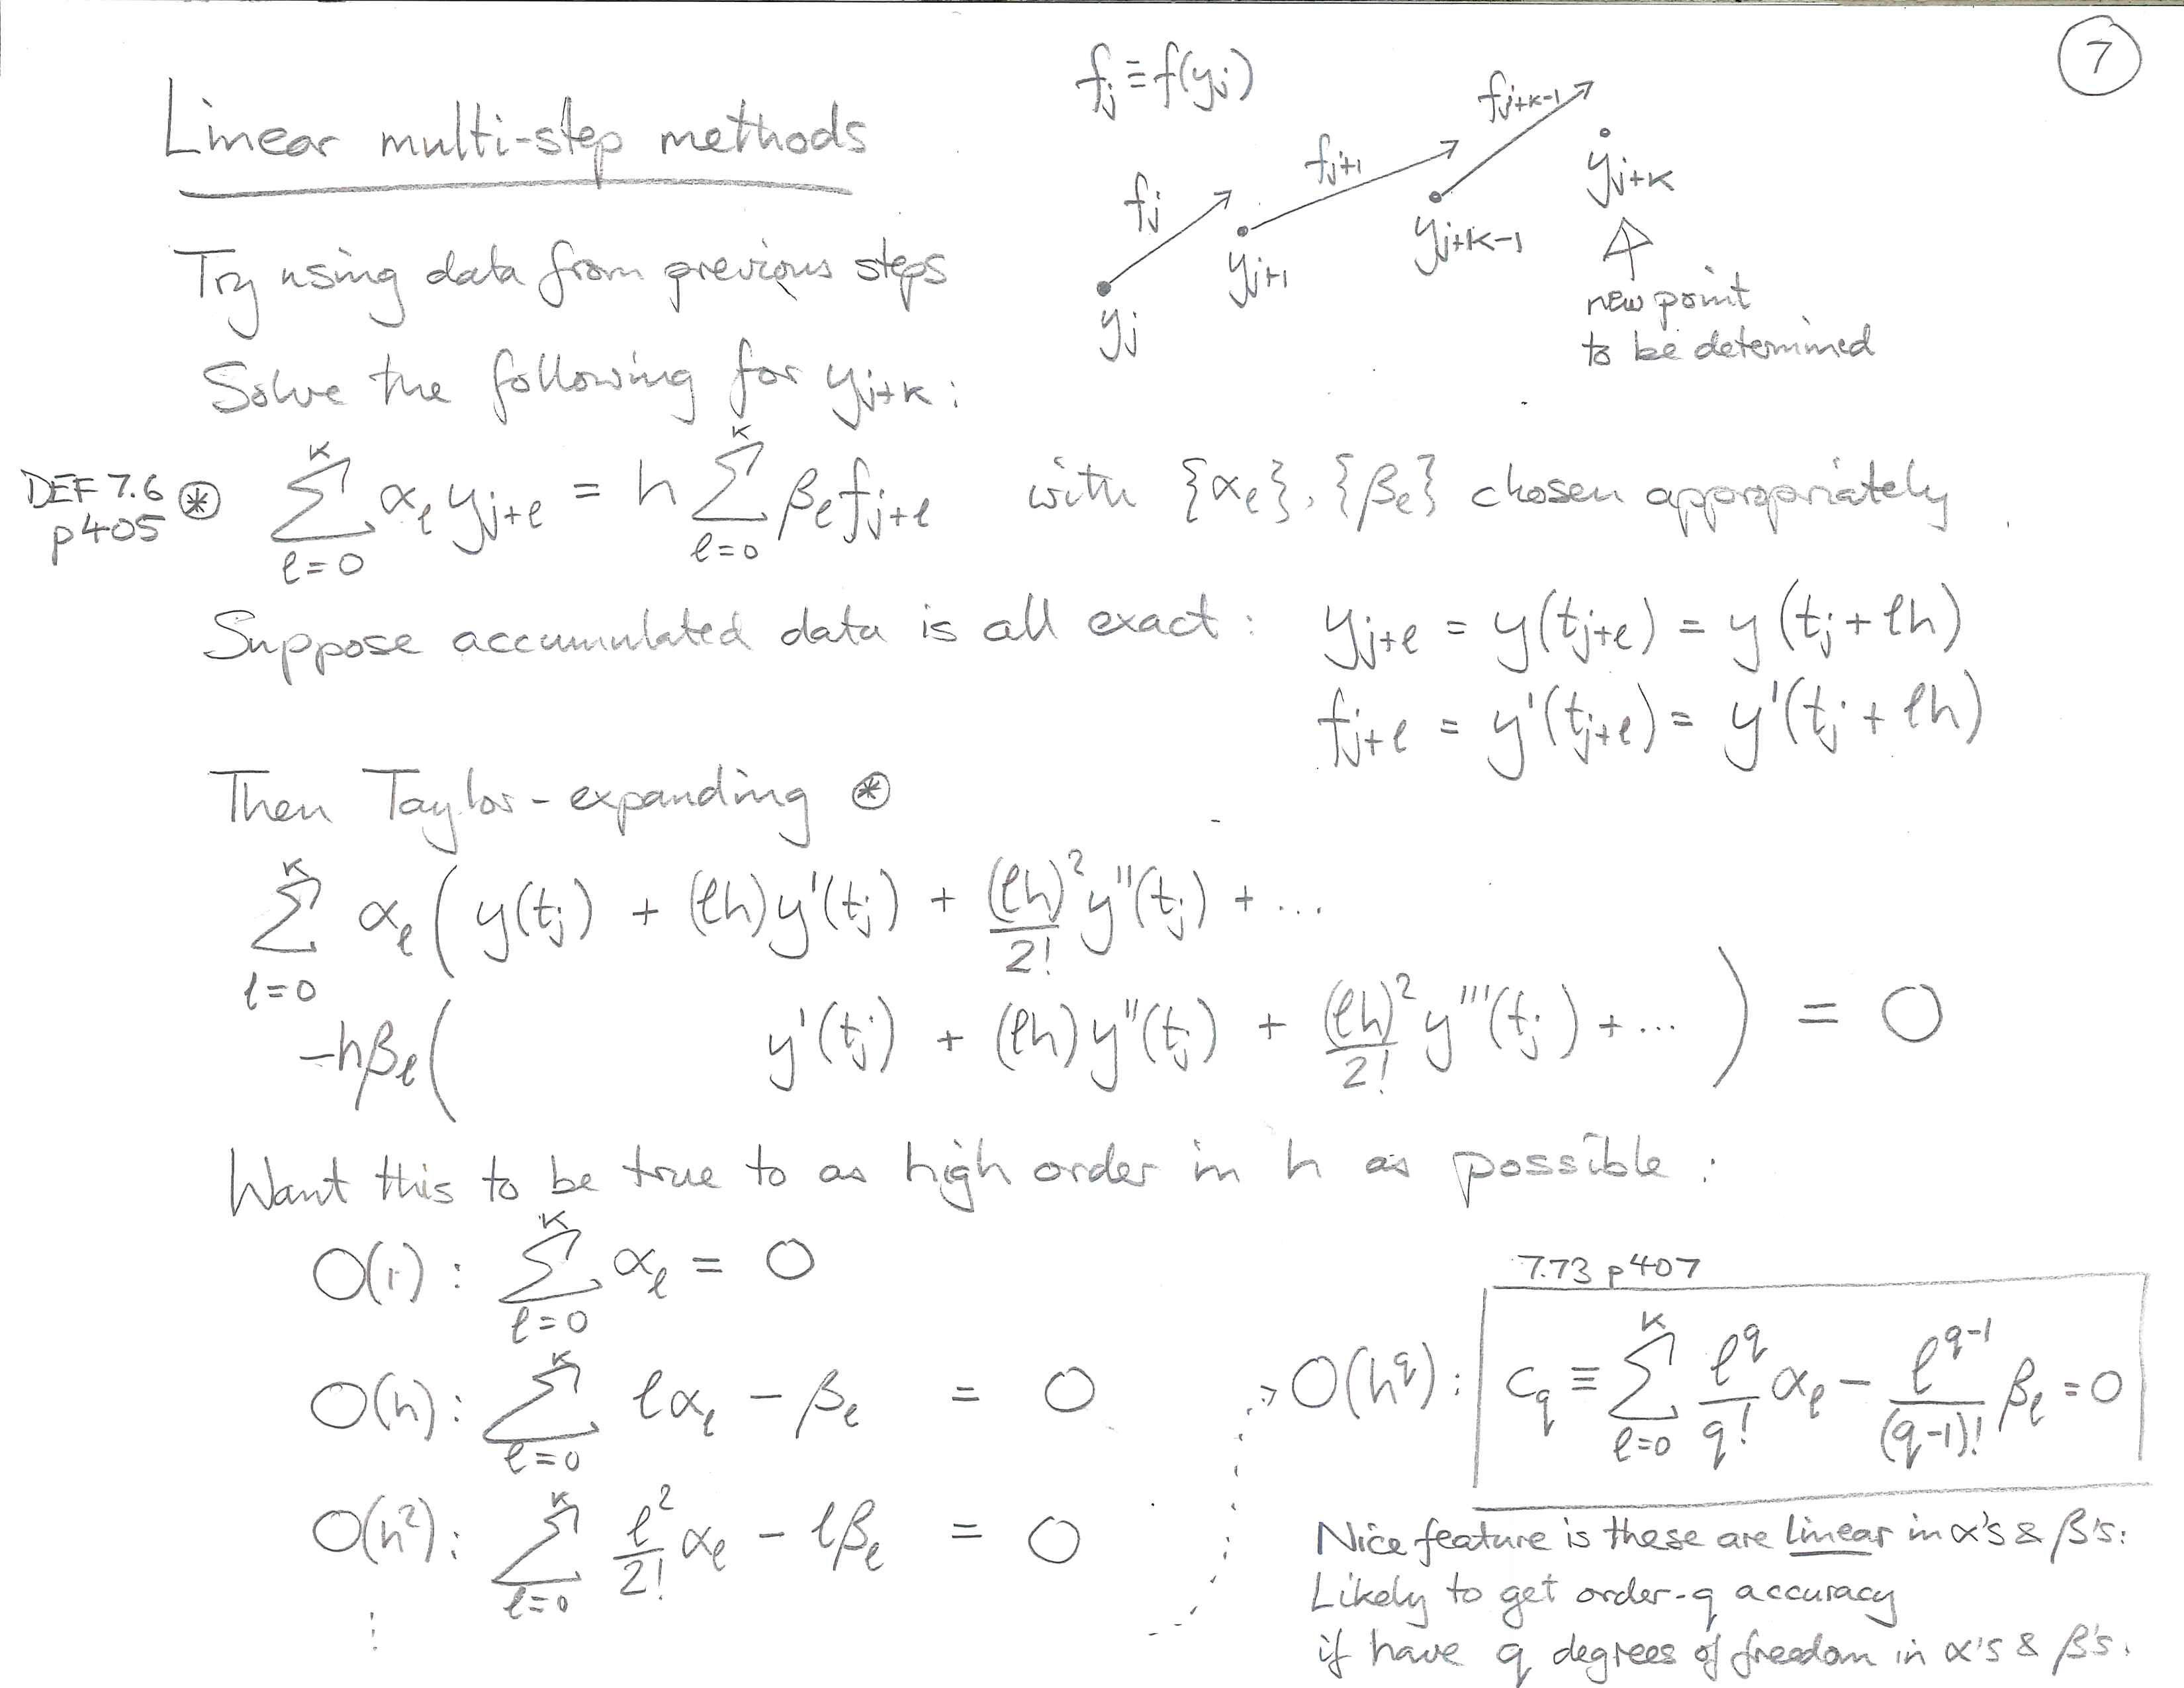 7
Linear multi-step methods
fⱼ ≡ f(yⱼ)
fⱼ
fⱼ₊₁
fⱼ₊ₖ₋₁
yⱼ
yⱼ₊₁
yⱼ₊ₖ₋₁
yⱼ₊ₖ
new point
to be determined
Try using data from previous steps
Solve the following for yⱼ₊ₖ :
DEF 7.6
p405
⊛ ∑_{ℓ=0}^{k} α_ℓ y_{j+ℓ} = h ∑_{ℓ=0}^{k} β_ℓ f_{j+ℓ} with {α_ℓ}, {β_ℓ} chosen appropriately.
Suppose accumulated data is all exact : y_{j+ℓ} = y(t_{j+ℓ}) = y(t_j + ℓh)
f_{j+ℓ} = y'(t_{j+ℓ}) = y'(t_j + ℓh)
Then Taylor-expanding ⊛
∑_{ℓ=0}^{k} α_ℓ ( y(t_j) + (ℓh)y'(t_j) + (ℓh)²/2! y''(t_j) + ...
-hβ_ℓ ( y'(t_j) + (ℓh)y''(t_j) + (ℓh)²/2! y'''(t_j) + ... ) = 0
Want this to be true to as high order in h as possible :
O(1) : ∑_{ℓ=0}^{k} α_ℓ = 0
O(h) : ∑_{ℓ=0}^{k} ℓα_ℓ - β_ℓ = 0
O(h²) : ∑_{ℓ=0}^{k} ℓ²/2! α_ℓ - ℓβ_ℓ = 0
⋮
7.73 p407
O(h^q) : c_q ≡ ∑_{ℓ=0}^{k} ℓ^q/q! α_ℓ - ℓ^{q-1}/(q-1)! β_ℓ = 0
Nice feature is these are linear in α's & β's :
Likely to get order-q accuracy
if have q degrees of freedom in α's & β's.